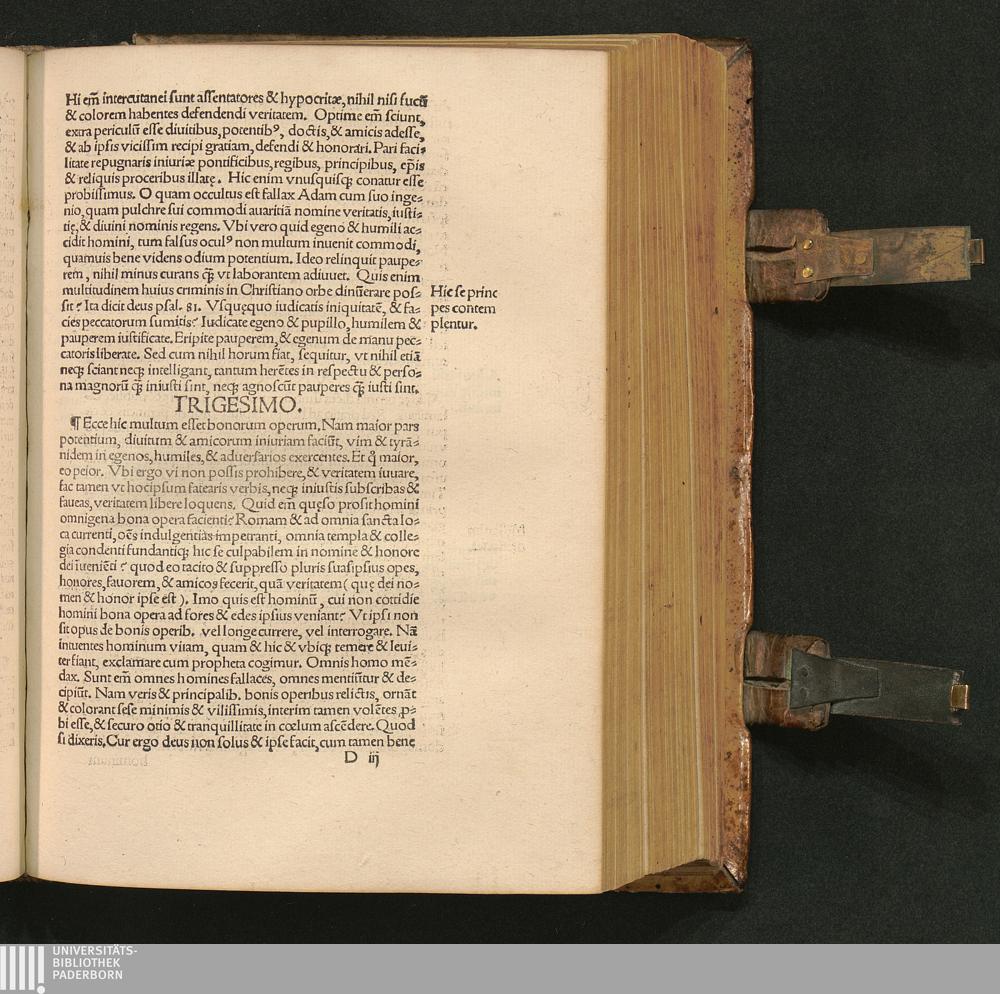 Hi em̃ intercutanei sunt assentatores & hypocritæ, nihil nisi fucũ
& colorem habentes defendendi veritatem. Optime em̃ sciunt,
extra periculũ esse diuitibus, potentibꝰ, doctis, & amicis adesse,
& ab ipsis vicissim recipi gratiam, defendi & honorari. Pari faci⸗
litate repugnaris iniuriæ pontificibus, regibus, principibus, ep̃is
& reliquis proceribus illatę. Hic enim vnusquisqꝫ conatur esse
probissimus. O quam occultus est fallax Adam cum suo inge⸗
nio, quam pulchre sui commodi auaritiã nomine veritatis, iusti⸗
tię, & diuini nominis regens. Vbi vero quid egeno & humili ac⸗
cidit homini, tum falsus oculꝰ non multum inuenit commodi,
quamuis bene videns odium potentium. Ideo relinquit paupe⸗
rem, nihil minus curans q̃ꝫ vt laborantem adiuuet. Quis enim
multitudinem huius criminis in Christiano orbe dinũerare pos⸗
sit? Ita dicit deus psal. 81. Vsquęquo iudicatis iniquitatẽ, & fa⸗
cies peccatorum sumitis? Iudicate egeno & pupillo, humilem &
pauperem iustificate. Eripite pauperem, & egenum de manu pec⸗
catoris liberate. Sed cum nihil horum fiat, sequitur, vt nihil etiã
neqꝫ sciant neqꝫ intelligant, tantum herẽtes in respectu & perso⸗
na magnorũ q̃ꝫ iniusti sint, neqꝫ agnoscũt pauperes q̃ꝫ iusti sint.
Hic se princ
pes contem
plentur.
TRIGESIMO.
¶ Ecce hic multum esset bonorum operum. Nam maior pars
potentium, diuitum & amicorum iniuriam faciũt, vim & tyrã⸗
nidem in egenos, humiles, & aduersarios exercentes. Et q̃ maior,
eo peior. Vbi ergo vi non possis prohibere, & veritatem iuuare,
fac tamen vt hoc ipsum fatearis verbis, neqꝫ iniustis subscribas &
faueas, veritatem libere loquens. Quid em̃ quęso prosit homini
omnigena bona opera facienti? Romam & ad omnia sancta lo⸗
ca currenti, oẽs indulgentias impetranti, omnia templa & colle⸗
gia condenti fundantiqꝫ hic se culpabilem in nomine & honore
dei ĩueniẽti? quod eo tacito & suppresso pluris suas ipsius opes,
honores, fauorem, & amicos fecerit, quã veritatem ( quę dei no⸗
men & honor ipse est ). Imo quis est hominũ, cui non cottidie
homini bona opera ad fores & edes ipsius veniant? Vt ipsi non
sit opus de bonis operib. vel longe currere, vel interrogare. Nã
intuentes hominum vitam, quam & hic & vbiqꝫ temere & leui⸗
ter fiant, exclamare cum propheta cogimur. Omnis homo mẽ⸗
dax. Sunt em̃ omnes homines fallaces, omnes mentiũtur & de⸗
cipiũt. Nam veris & principalib. bonis operibus relictis, ornãt
& colorant sese minimis & vilissimis, interim tamen volẽtes ꝓ⸗
bi esse, & securo otio & tranquillitate in cœlum ascẽdere. Quod
si dixeris, Cur ergo deus non solus & ipse facit, cum tamen bene
D iij
UNIVERSITÄTS-
BIBLIOTHEK
PADERBORN